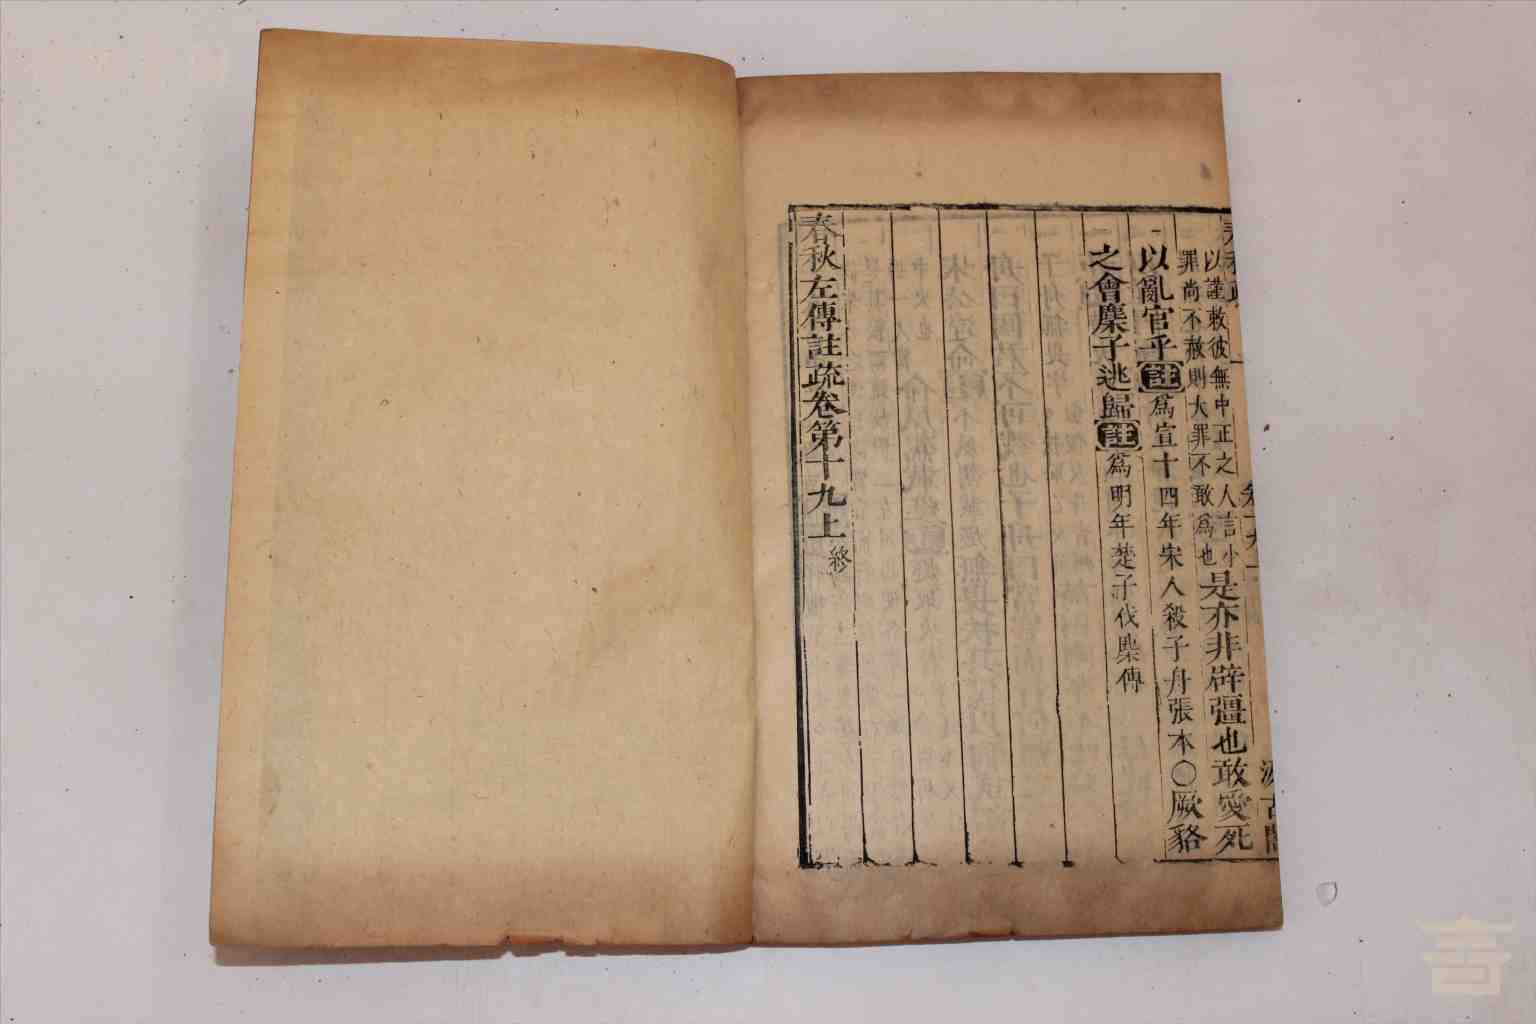 以謹敕彼無中正之人言小
罪尚不赦則大罪不敢為也
是亦非辟彊也敢愛死
以亂官乎註為宣十四年宋人殺子舟張本〇厥貉
之會麇子逃歸註為明年楚子伐麇傳
春秋左傳註疏卷第十九上終